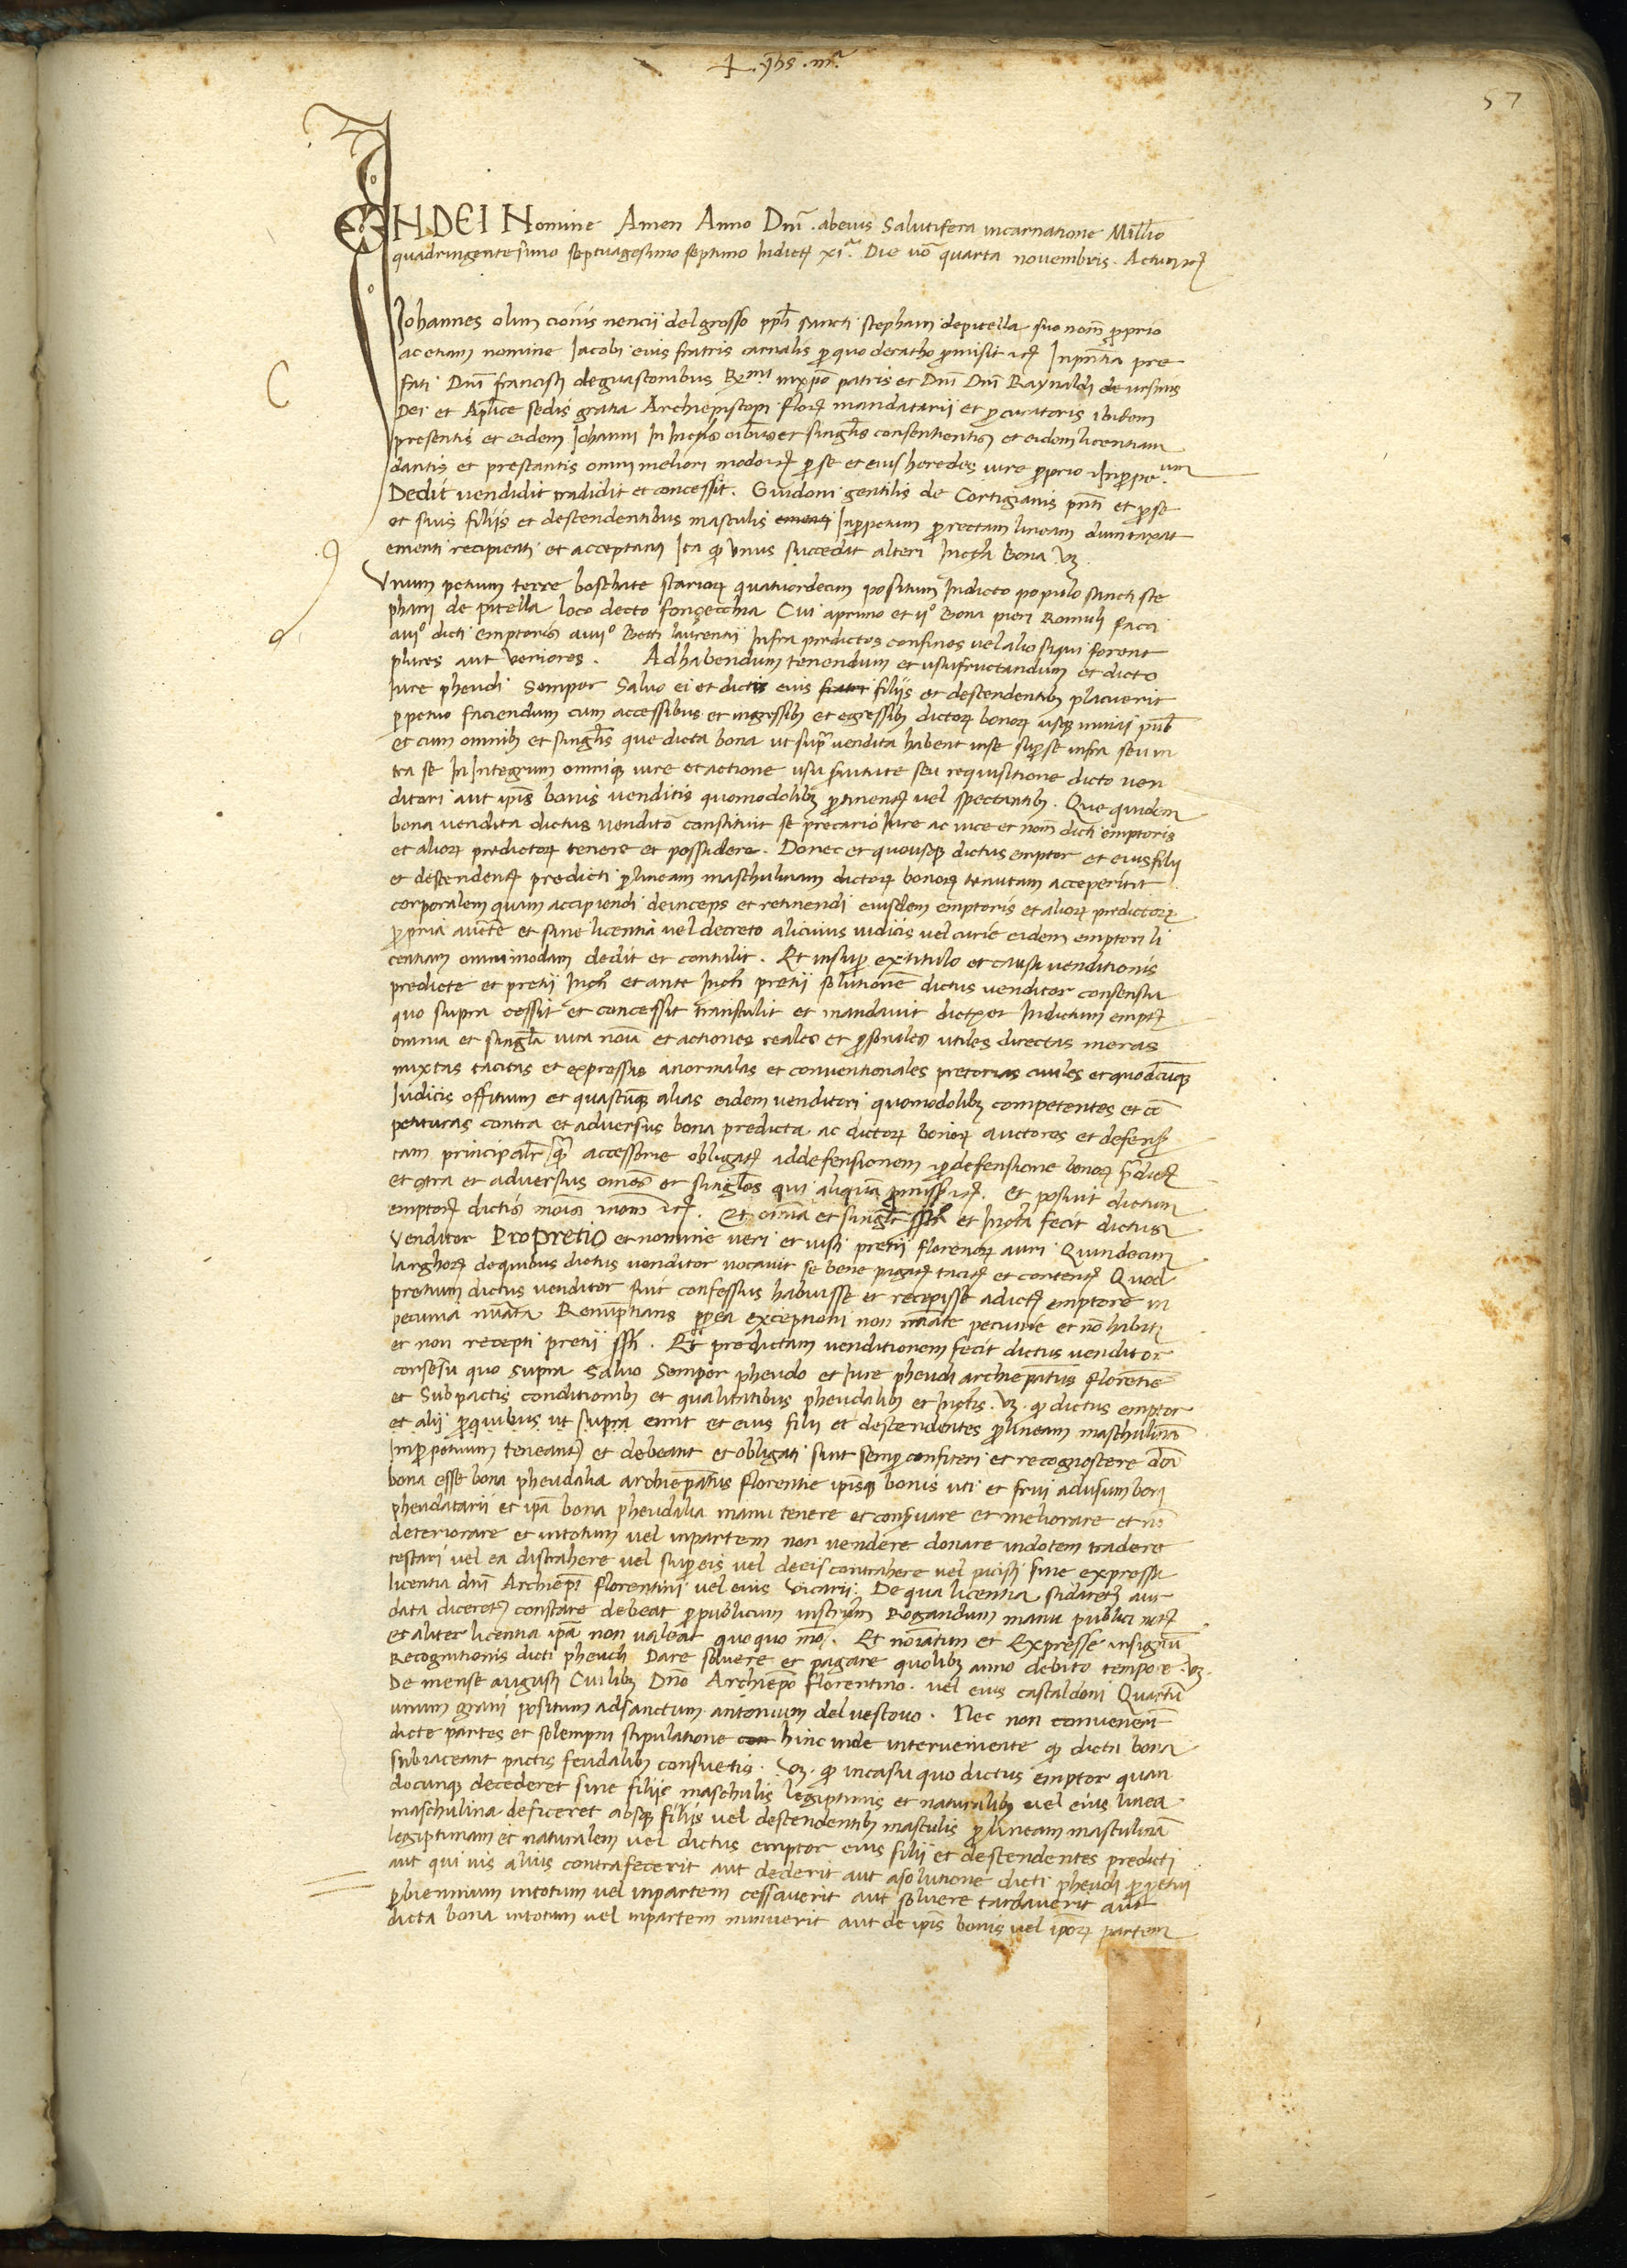 + . yhs . mᵃ.
57
IN DEI Nomine Amen Anno Dnī . abeius Salutifera incarnatione Mill'io
quadringentesimo septuagesimo septimo Indict' xiᵃ. Die vō quarta novembris . Actum
Johannes olim cionis nencii del grosso ppl'i sancti stephani depitella suo noīe proprio
ac etiam nomine Jacobi eius fratris carnalis pro quo deratho promisit Inpn̄tia pre
fati Dnī francisci deguasconibus Rᵐⁱ inxpō patris et Dnī Dnī Raynaldi de ursinis
Dei et Apl'ice sedis gratia Archiepiscopi flor' mandatarii et procuratoris ibidem
presentis et eidem Johanni In Infrīs oībus et singl'is consentientis et eidem licentiam
dantis et prestantis omni meliori modo per se et eius heredes iure proprio inperpe.ᵘᵘᵐ
Dedit vendidit tradidit et concessit . Guidoni gentilis de Cortigianis pn̄ti et pro se
et suis filiis et descendentibus masculis ementi Inperpetuum per rectam lineam dumtaxat
ementi recipienti et acceptanti Ita quod vnus succedat alteri Infrā bona vz.
Vnum petium terre boschate starior quatuordecim positum Indicto populo sancti ste
phani de pitella loco decto fonçecchia Cui aprimo et ii° Bona pieri Romuli facci
aiii° dicti emptoris aiiii° Betti laurentii Infra predictos confines vel alios siqui forent
plures aut veriores . Adhabendum tenendum et usufructandum et dicto
Iure pheudi Semper Salvo ei et dictis eius fratri filiis et descendentibus placuerit
perpetuo faciendum cum accessibus et ingressibus et egressibus dictor bonor usque inviā pub'
et cum omnibus et singl'is que dicta bona ut supra vendita habent inse super se infra seu in
tra se In Integrum omnique iure et actione usu servitute seu requisitione dicto ven
ditori aut ipīs bonis venditis quomodolibet pertinen' vel spectantibus . Que quidem
bona vendita dictus venditor constituit se precario Iure ac vice et noīe dicti emptoris
et alior predictor tenere et possidere . Donec et quousque dictus emptor et eius filii
et descenden' predicti per lineam maschulinam dictor bonor tenutam acceperint
corporalem quam accipiendi deinceps et retinendi eiusdem emptoris et alior predictor
propria auctē et sine licentia vel decreto alicuius iudicis vel curie eidem emptori li
centiam omnimodam dedit et contulit . Et insuper extitulo et causa venditionis
predicte et pretii Infrī et ante Infrī pretii solutionē dictus venditor consensu
quo supra cessit et concessit transtulit et mandavit dicto et Indictum empt'
omnia et singl'a iura noīa et actiones reales et personales utiles directas meras
mixtas tacitas et expressas anormalas et conventionales pretorias civiles et quodcumque
Iudicis offitium et quascumque alias eidem venditori quomodolibet competentes et cō
petituras contra et adversus bona predicta ac dictor bonor auctores et defens'
tam principalr̄ quam accessorie obligat' addefensionem et pro defensione bonor pred'
et contra et adversus omēs et singl'os qui aliquā promiss' . Et posuit dictum
emptor' dictis noīs . Et omīa et singl'a ssta et Infrā fecit dictus
Venditor Pro pretio et nomine veri et iusti pretii florenor auri Quindecim
larghor dequibus dictus venditor vocavit se bene pagat' tacit' et content' Quod
pretium dictus venditor fuit confessus habuisse et recepisse adicto emptore in
pecunia nūata Renumptians propterea exceptioni non nūate pecunie et nō habiti
et non recepti pretii ssti . Et predictam venditionem fecit dictus venditor
consēsu quo supra Salvo Semper pheudo et Iure pheudi archiepatus florentie
et Subpactis conditionibus et qualitatibus pheudalibus et Infrīs . vz . quod dictus emptor
et alii pro quibus ut supra emit et eius filii et descendentes per lineam maschulinā
Inperpetuum teneant' et debeant et obligati sint semper confiteri et recognoscere dcā
bona esse bona pheudalia archiepatus florentie ipīsque bonis uti et frui adusum boni
pheudatarii et ipā bona pheudalia manu tenere et conservare et meliorare et nō
deteriorare et intotum vel inpartem non vendere donare indotem tradere
testari vel ea distrahere vel super eis vel de eis contrahere vel pacisci sine expressa
licentia dnī Archiepī florentini vel eius Vicarii . De qua licentia sidaret' aut
data diceret' constare debeat per publicum instrūm Rogandum manu publici not'
et aliter licentia ipā non valeat quoquo mō . Et noīatim et Expresse insignū
Recognitionis dicti pheudi Dare solvere et pagare quolibet anno debito tempore . vz .
De mense augusti Cuilibet Dnō Archiepō florentino . vel eius castaldoni Quartū
unum grani positum adsanctum antonium del vescovo . Nec non convenerūt
dicte partes et solempni stipulatione con hinc inde interveniente quod dicta bona
subiaceant pactis feudalibus consuetis . vz . quod incasu quo dictus emptor quan
documque decederet sine filiis maschulis legiptimis et naturalibus vel eius linea
maschulina deficeret absque filiis vel descendentibus masculis per lineam masculinā
legiptimam et naturalem vel dictus emptor eius filii et descendentes predicti
aut qui vis alius contrafecerit aut dederit aut asolutione dicti pheudi perpetui
per biennium intotum vel inpartem cessaverit aut solvere tardaverit aut
dicta bona intotum vel inpartem minuerit aut de ipīs bonis vel ipōr partem